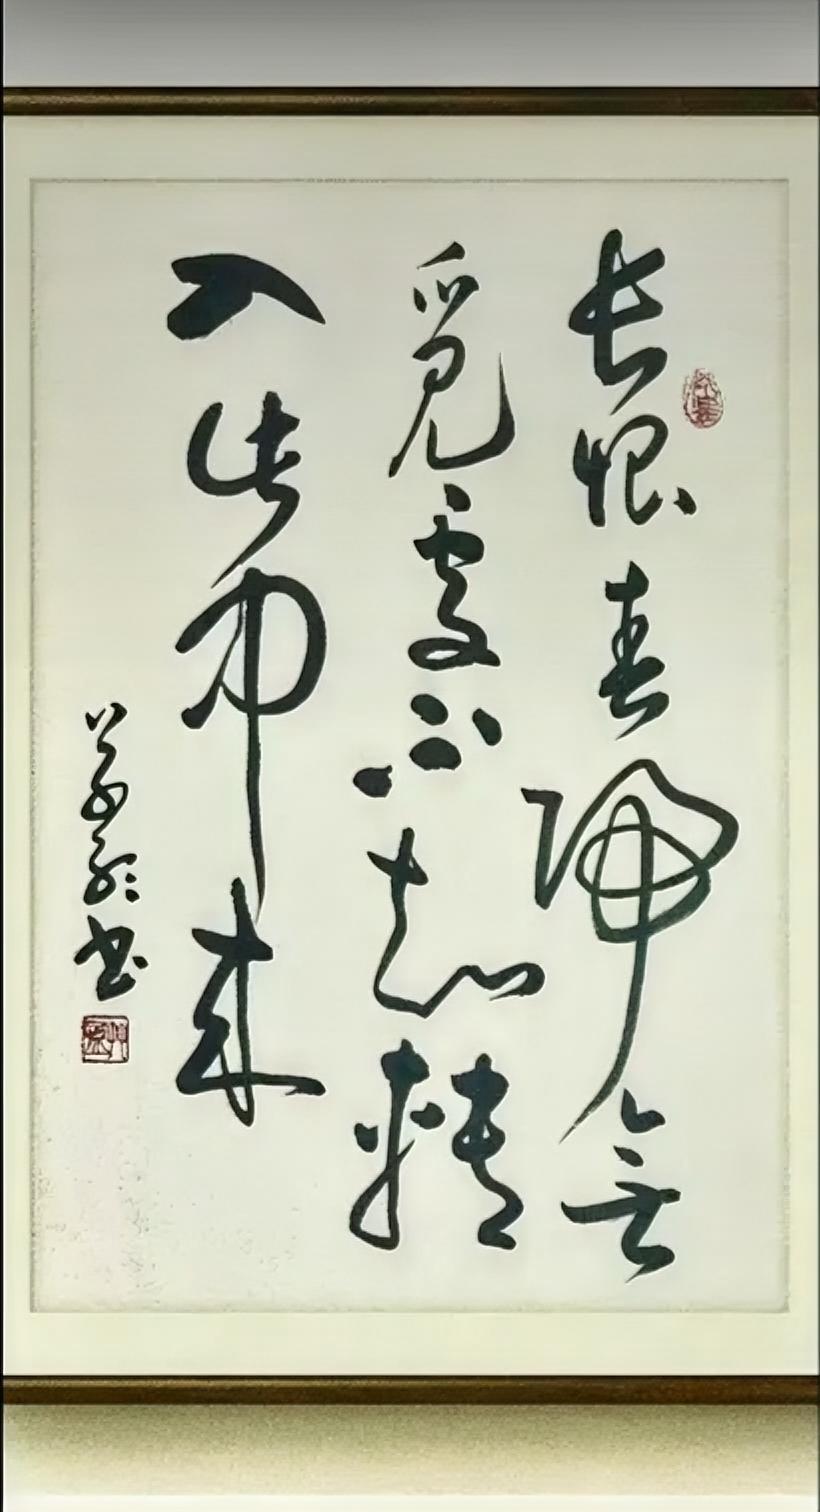 长恨春归无
觅处不知转
入此中来
书